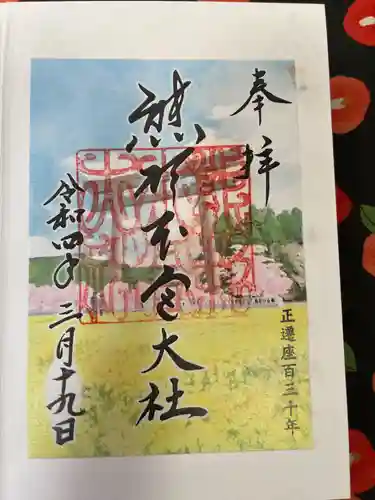 奉拝
熊野本宮大社
令和四年三月十九日
正遷座百三十年